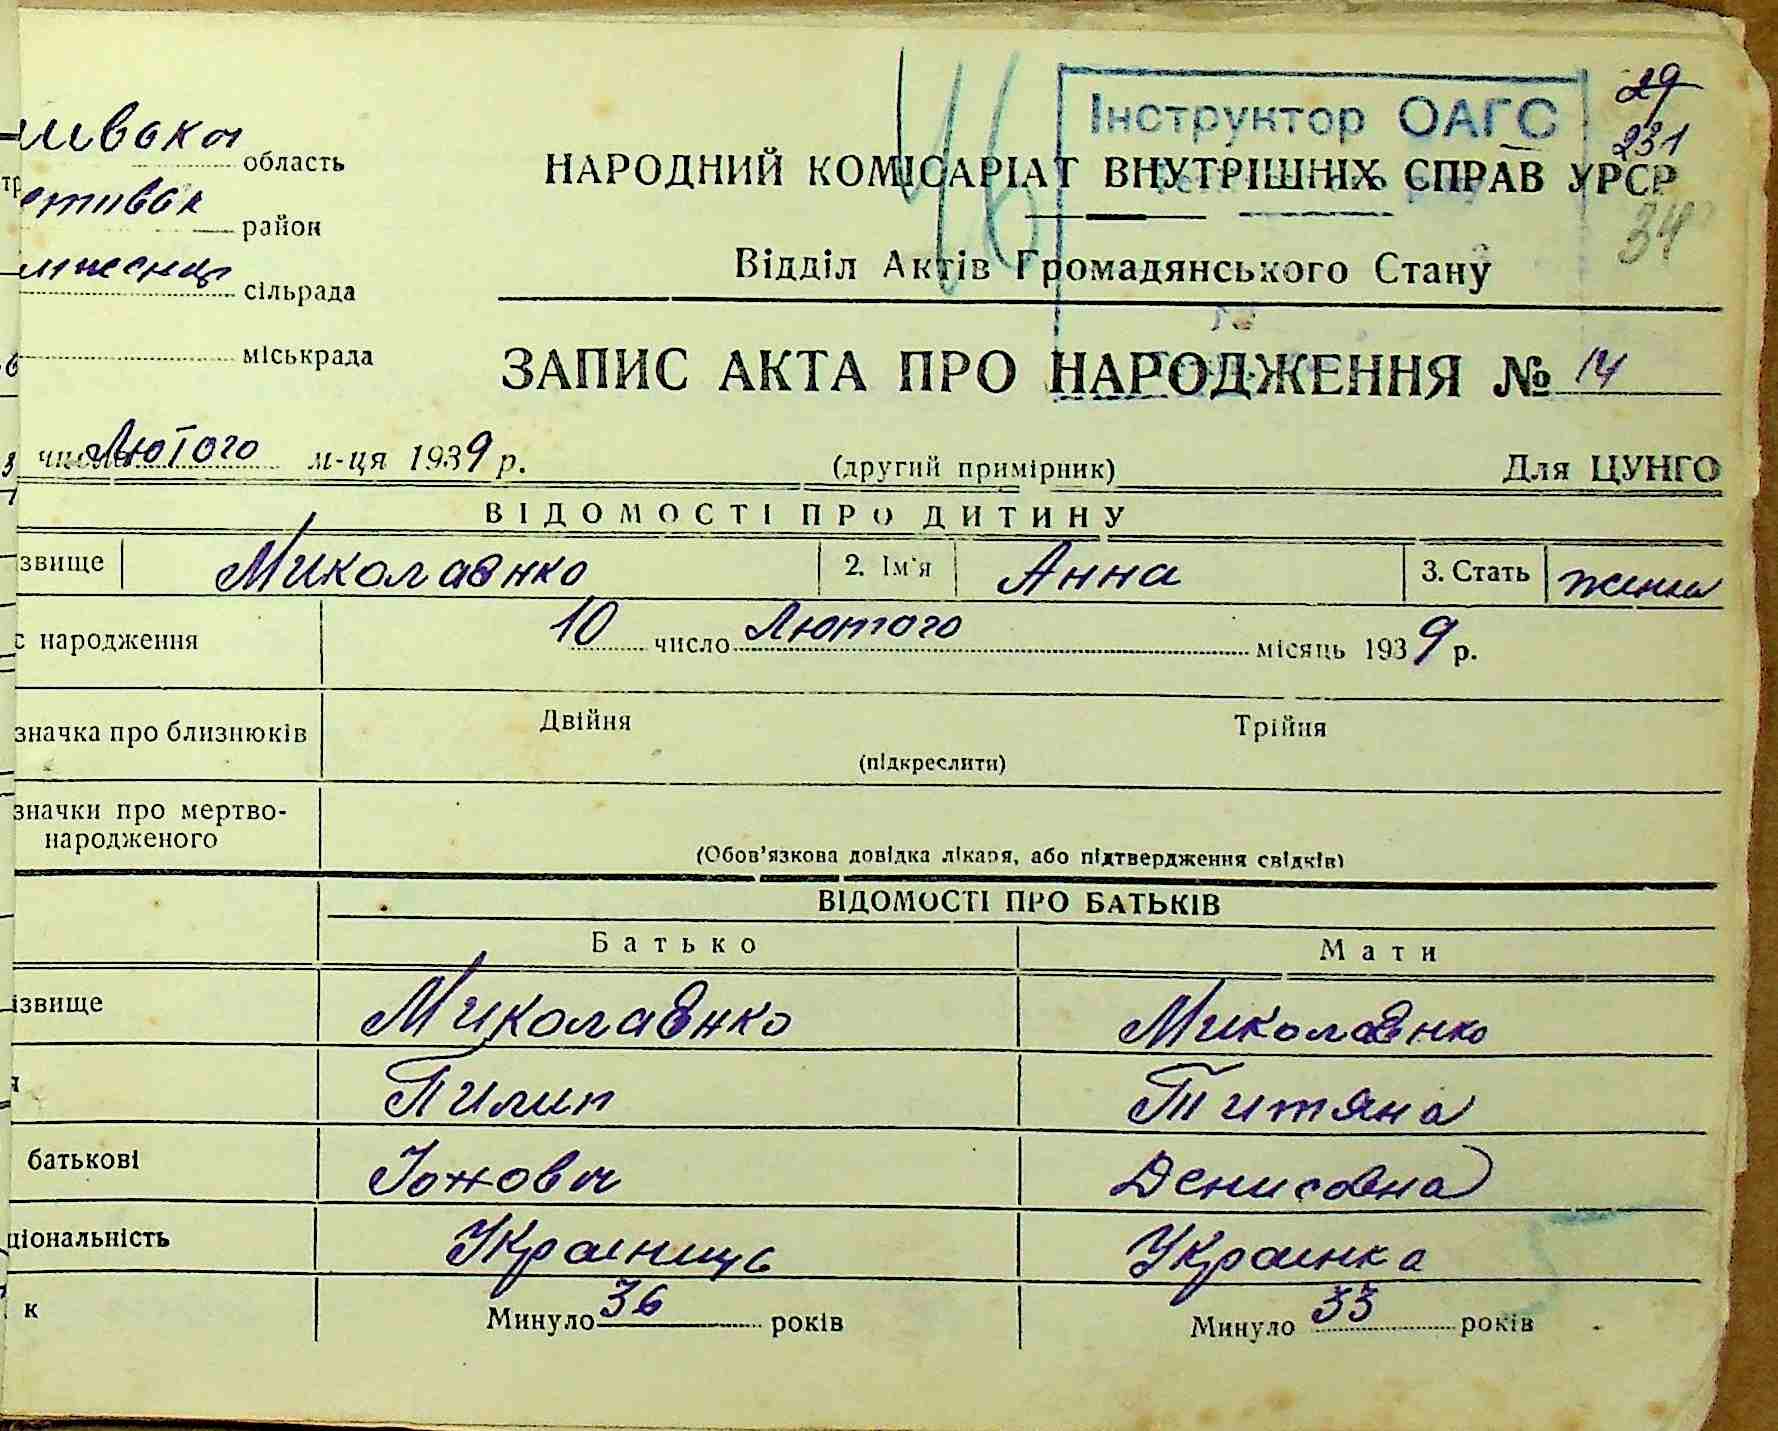 Інструктор ОАГС
29
231
34
46
область
НАРОДНИЙ КОМІСАРІАТ ВНУТРІШНІХ СПРАВ УРСР
район
Відділ Актів Громадянського Стану
сільрада
міськрада
ЗАПИС АКТА ПРО НАРОДЖЕННЯ № 14
число Лютого м-ця 1939 р. (другий примірник) Для ЦУНГО
ВІДОМОСТІ ПРО ДИТИНУ
звище Миколаенко 2. Ім'я Анна 3. Стать
с народження 10 число Лютого місяць 1939 р.
значка про близнюків Двійня Трійня
(підкреслити)
значки про мертво-
народженого
(Обов'язкова довідка лікаря, або підтвердження свідків)
ВІДОМОСТІ ПРО БАТЬКІВ
Батько Мати
ізвище Миколаенко Миколаенко
я Пилип Титяна
батькові Денисовна
ціональність Украинць Украинка
к Минуло 36 років Минуло 33 років